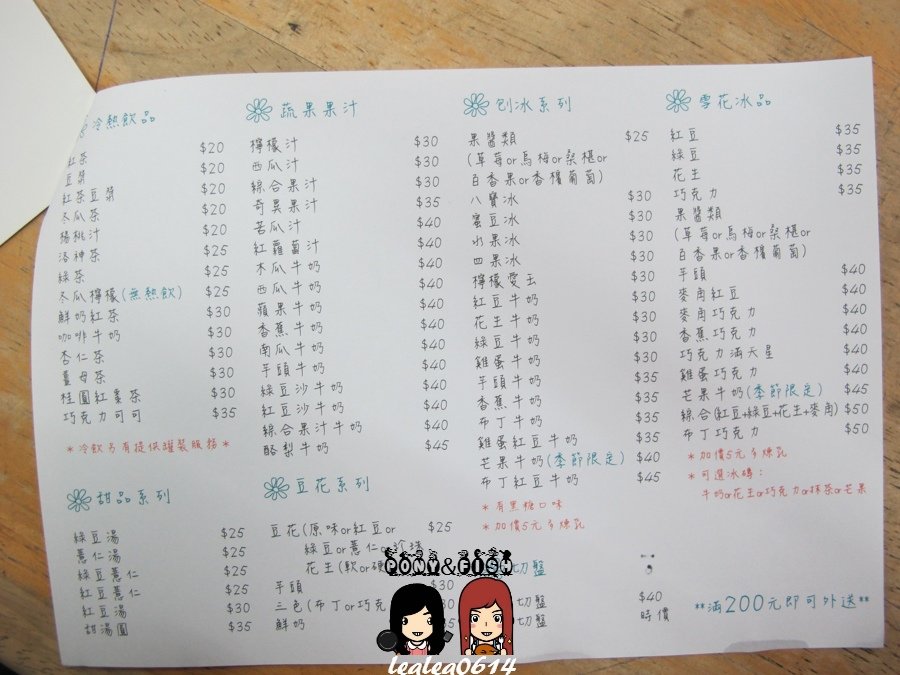 冷熱飲品
紅茶 $20
豆漿 $20
紅茶豆漿 $20
冬瓜茶 $20
楊桃汁 $20
洛神茶 $25
綠茶 $25
冬瓜檸檬(無熱飲) $25
鮮奶紅茶 $30
咖啡牛奶 $30
杏仁茶 $30
薑母茶 $30
桂圓紅棗茶 $30
巧克力可可 $35
*冷飲另有提供罐裝服務*
蔬果果汁
檸檬汁 $30
西瓜汁 $30
綜合果汁 $30
奇異果汁 $35
苦瓜汁 $40
紅蘿蔔汁 $40
木瓜牛奶 $40
西瓜牛奶 $40
蘋果牛奶 $40
香蕉牛奶 $40
南瓜牛奶 $40
芋頭牛奶 $40
綠豆沙牛奶 $40
紅豆沙牛奶 $40
綜合果汁牛奶 $40
酪梨牛奶 $45
刨冰系列
果醬類 $25
(草莓or烏梅or桑椹or
百香果or香檳葡萄)
八寶冰 $30
蜜豆冰 $30
水果冰 $30
四果冰 $30
檸檬愛玉 $30
紅豆牛奶 $30
花生牛奶 $30
綠豆牛奶 $30
雞蛋牛奶 $30
芋頭牛奶 $35
香蕉牛奶 $35
布丁牛奶 $35
雞蛋紅豆牛奶 $35
芒果牛奶(季節限定) $40
布丁紅豆牛奶 $45
*有黑糖口味
*加價5元多煉乳
雪花冰品
紅豆 $35
綠豆 $35
花生 $35
巧克力 $35
果醬類
(草莓or烏梅or桑椹or
百香果or香檳葡萄)
芋頭 $40
麥角紅豆 $40
麥角巧克力 $40
香蕉巧克力 $40
巧克力滿天星 $40
雞蛋巧克力 $40
芒果牛奶(季節限定) $45
綜合(紅豆+綠豆+花生+麥角) $50
布丁巧克力 $50
*加價5元多煉乳
*可選冰磚：
牛奶or花生or巧克力or抹茶or芒果
甜品系列
綠豆湯 $25
薏仁湯 $25
綠豆薏仁 $25
紅豆薏仁 $25
紅豆湯 $30
甜湯圓 $35
豆花系列
豆花(原味or紅豆or $25
綠豆or薏仁or珍珠
花生(軟or硬
芋頭 $30
三色(布丁or巧克 30
鮮奶
切盤
切盤 $40
切盤 時價
**滿200元即可外送**
PONY&FISH
lealea0614